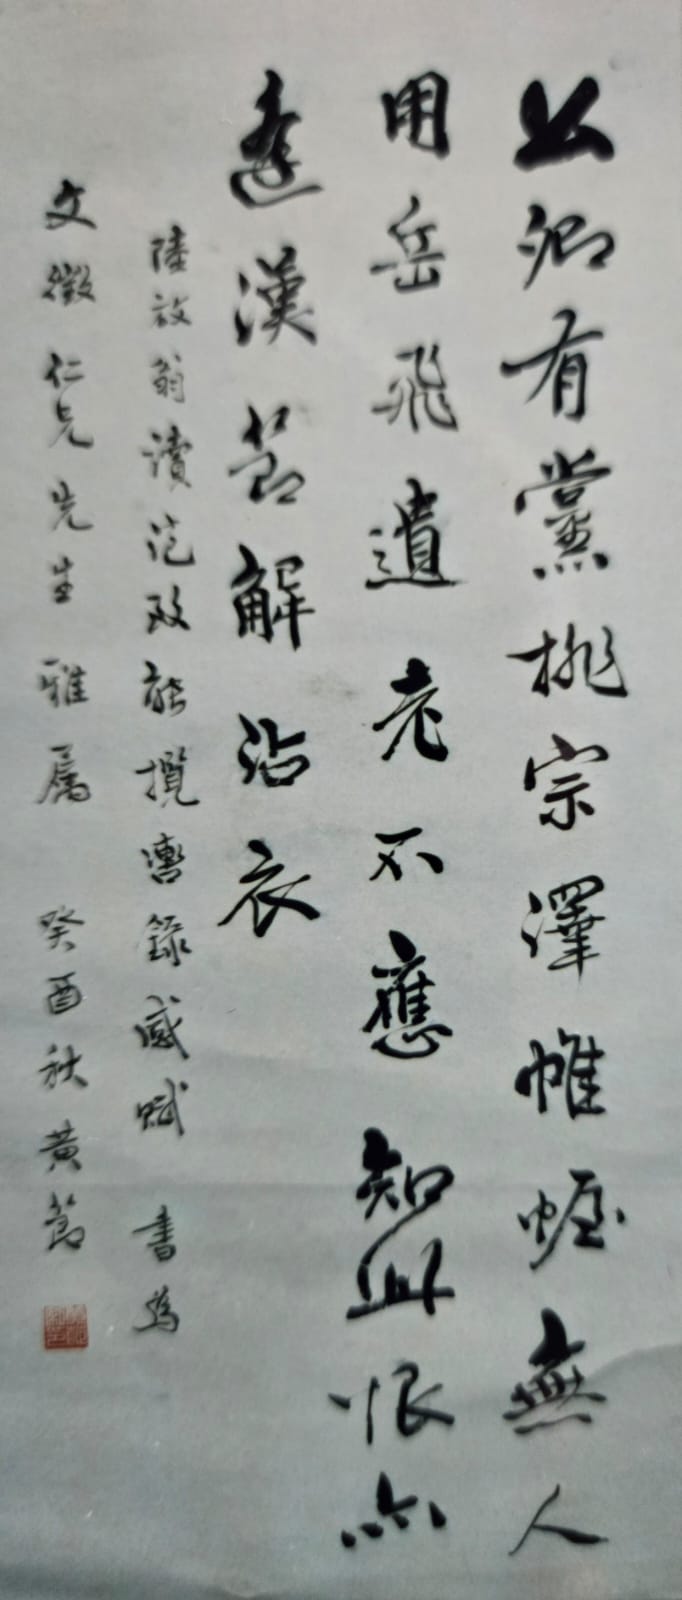 公卿有黨排宗澤帷幄無人
用岳飛遺老不應知此恨亦
逢漢節解沾衣
陸放翁讀范致能攬轡錄感賦 書為
文徵仁兄先生雅属 癸酉秋黄節